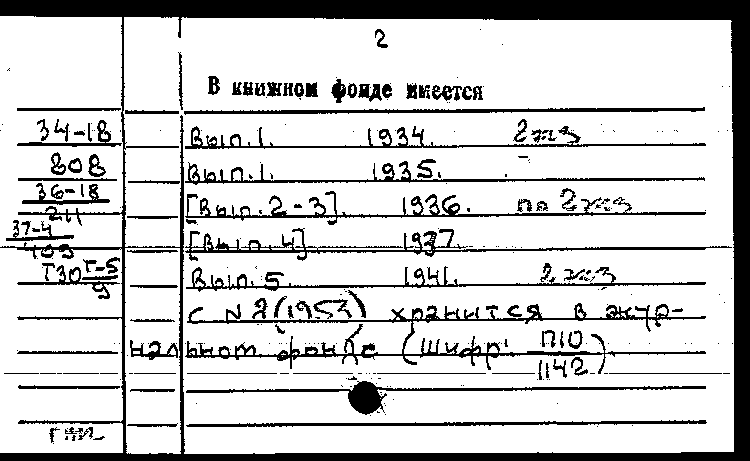 2
В книжном фонде имеется
34-18 Вып. 1. 1934. 2 экз
808 Вып. 1. 1935. -
36-18/211 [Вып. 2-3]. 1936. по 2 экз
37-4/409 [Вып. 4] 1937.
Т30 Г-5/9 Вып. 5. 1941. 2 экз
с N 2 (1953) хранится в жур-
нальном фонде (Шифр: П10/1142).